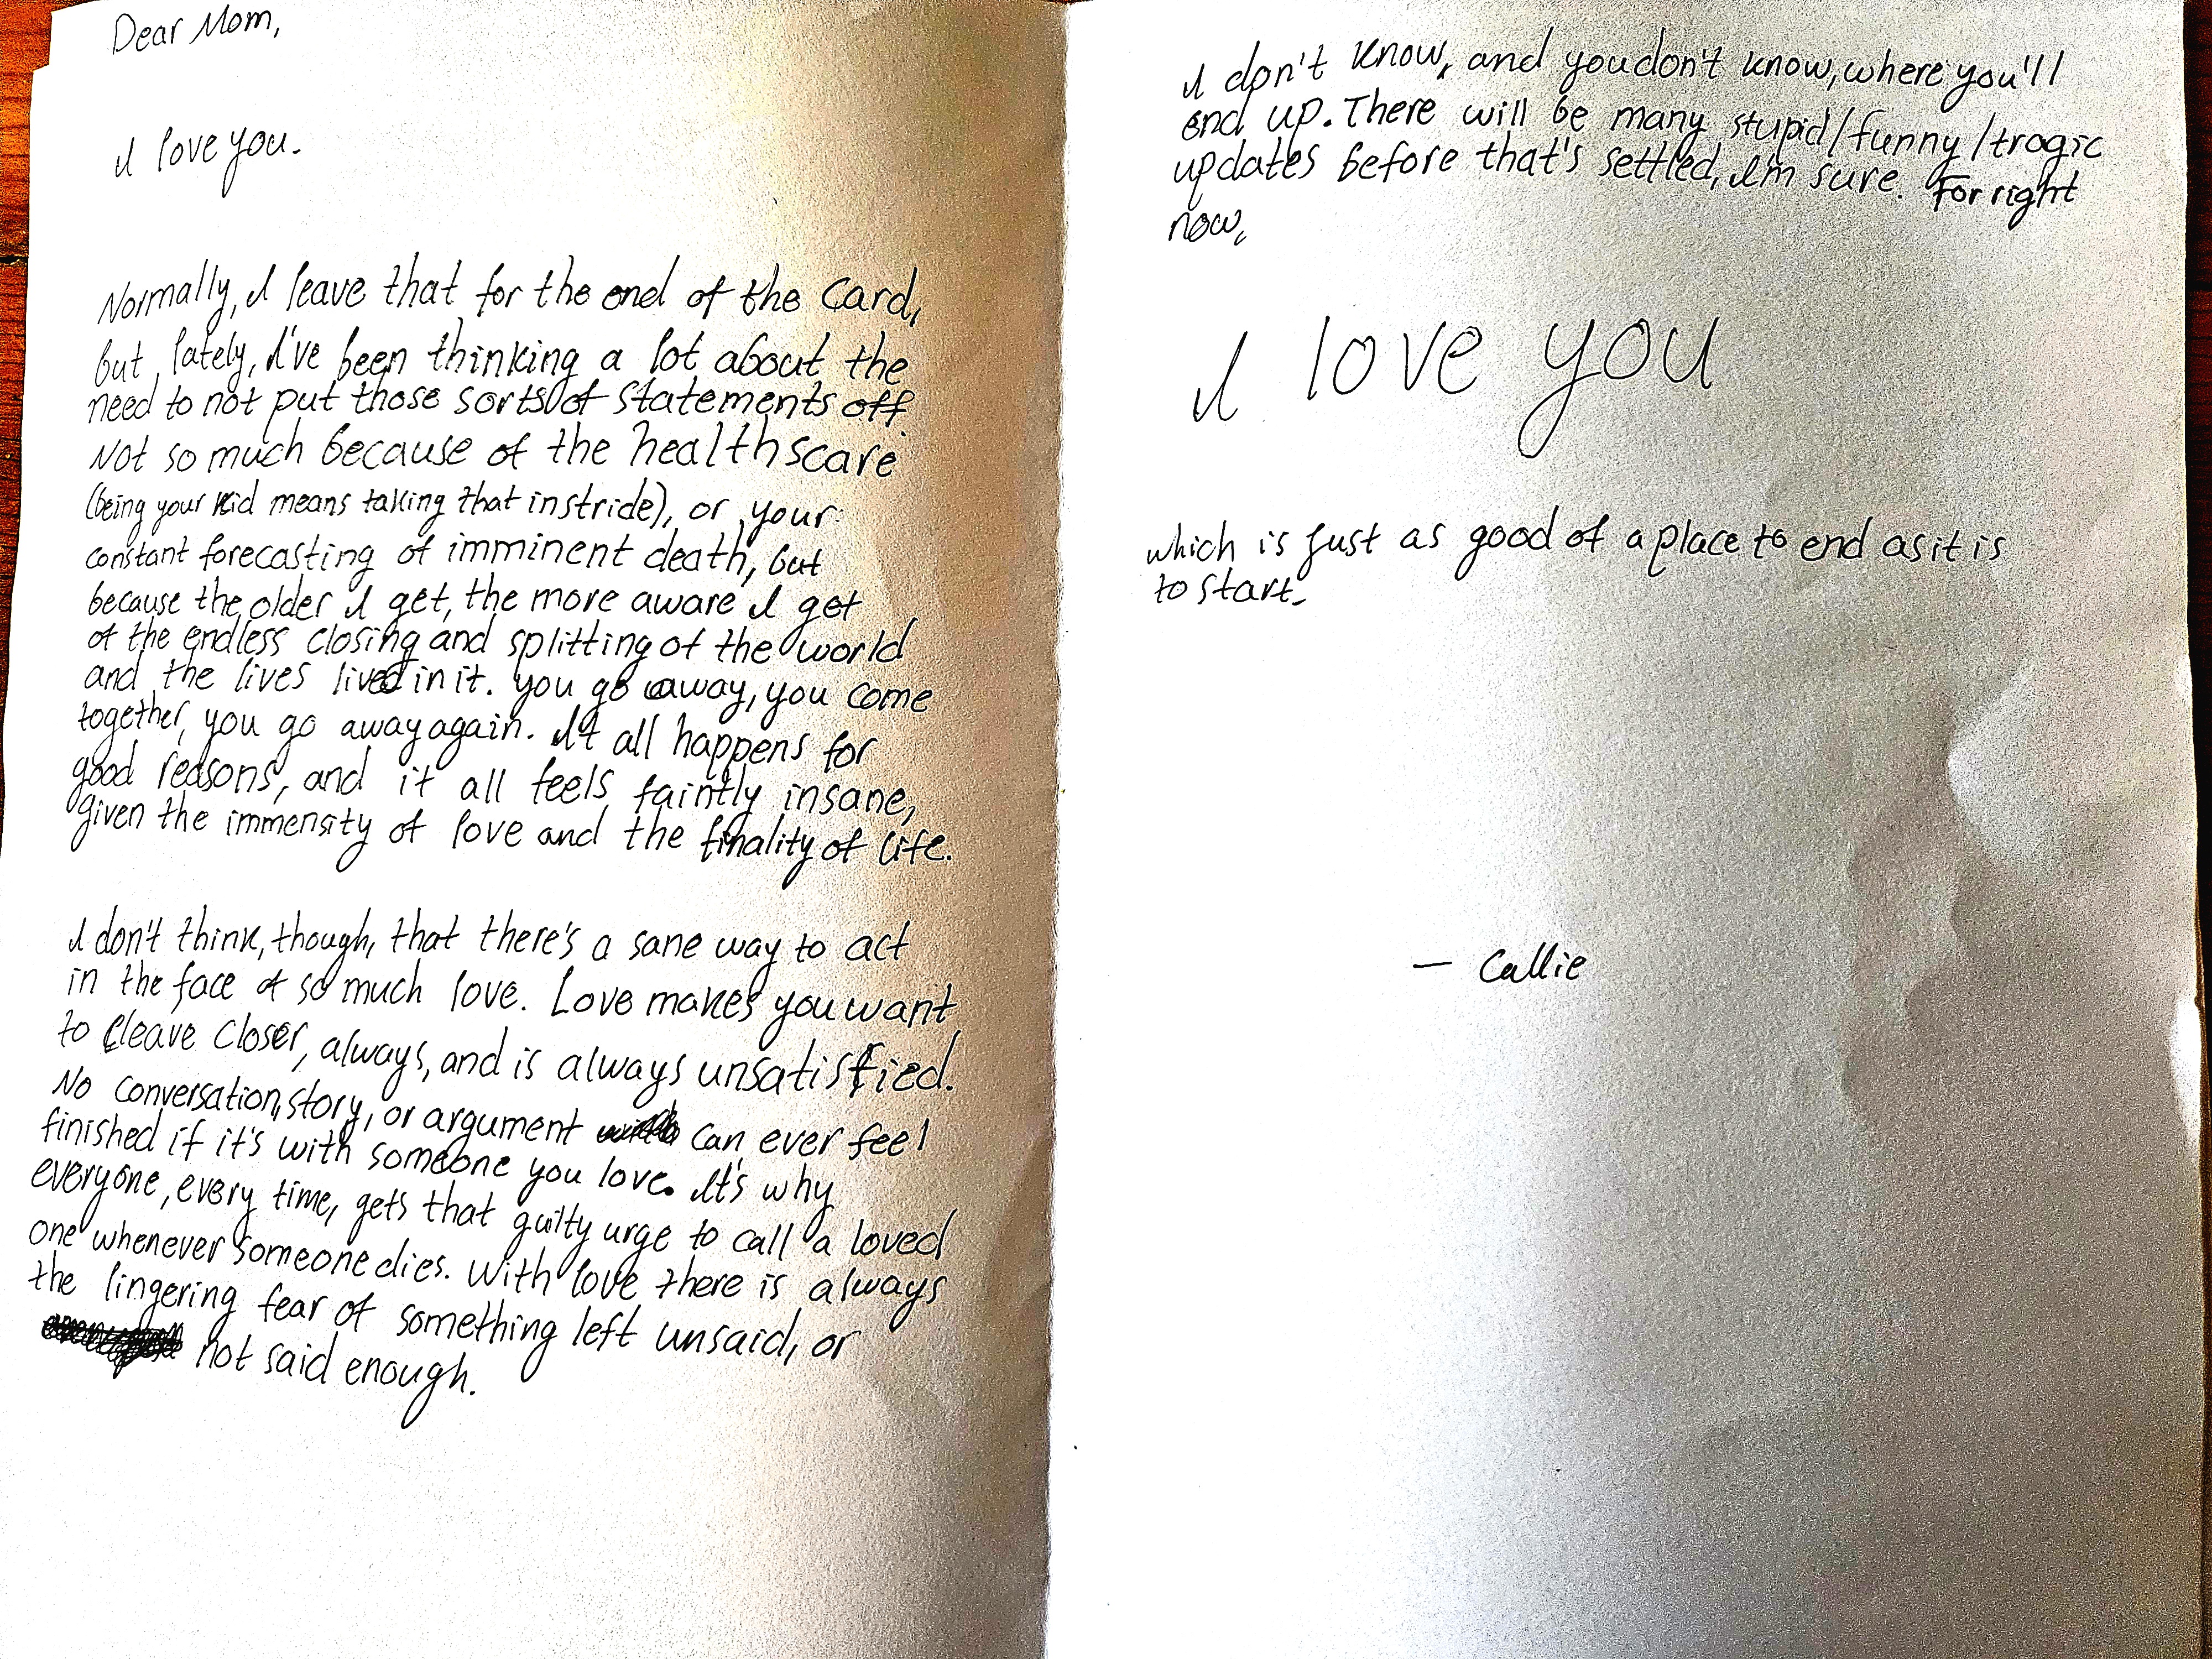 Dear Mom,
I love you.
Normally, I leave that for the end of the card,
but, lately, I've been thinking a lot about the
need to not put those sorts of statements off.
Not so much because of the health scare
(being your kid means taking that in stride), or your
constant forecasting of imminent death, but
because the older I get, the more aware I get
of the endless closing and splitting of the world
and the lives lived in it. You go away, you come
together, you go away again. It all happens for
good reasons, and it all feels faintly insane,
given the immensity of love and the finality of life.
I don't think, though, that there's a sane way to act
in the face of so much love. Love makes you want
to cleave closer, always, and is always unsatisfied.
No conversation, story, or argument can ever feel
finished if it's with someone you love. It's why
everyone, every time, gets that guilty urge to call a loved
one whenever someone dies. With love there is always
the lingering fear of something left unsaid, or
not said enough.
I don't know, and you don't know, where you'll
end up. There will be many stupid/funny/tragic
updates before that's settled, I'm sure. For right
now,
I love you
which is just as good of a place to end as it is
to start.
— Callie